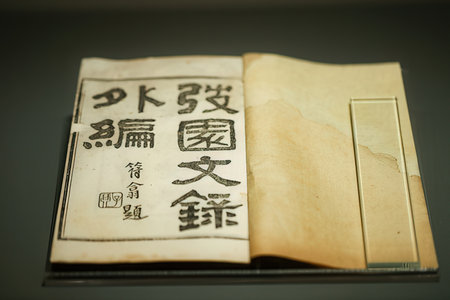 弢園文錄
外編
符翁題